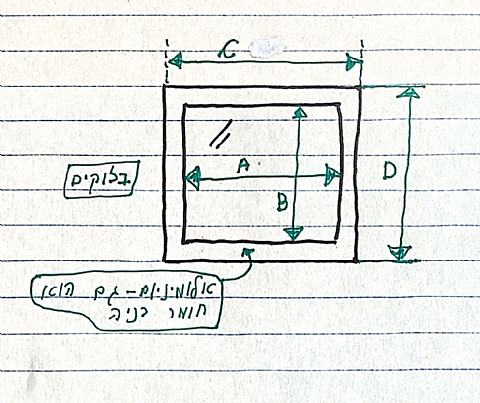 C
A
B
D
בלוקים
אלומיניום - גם הוא
חומר בניה